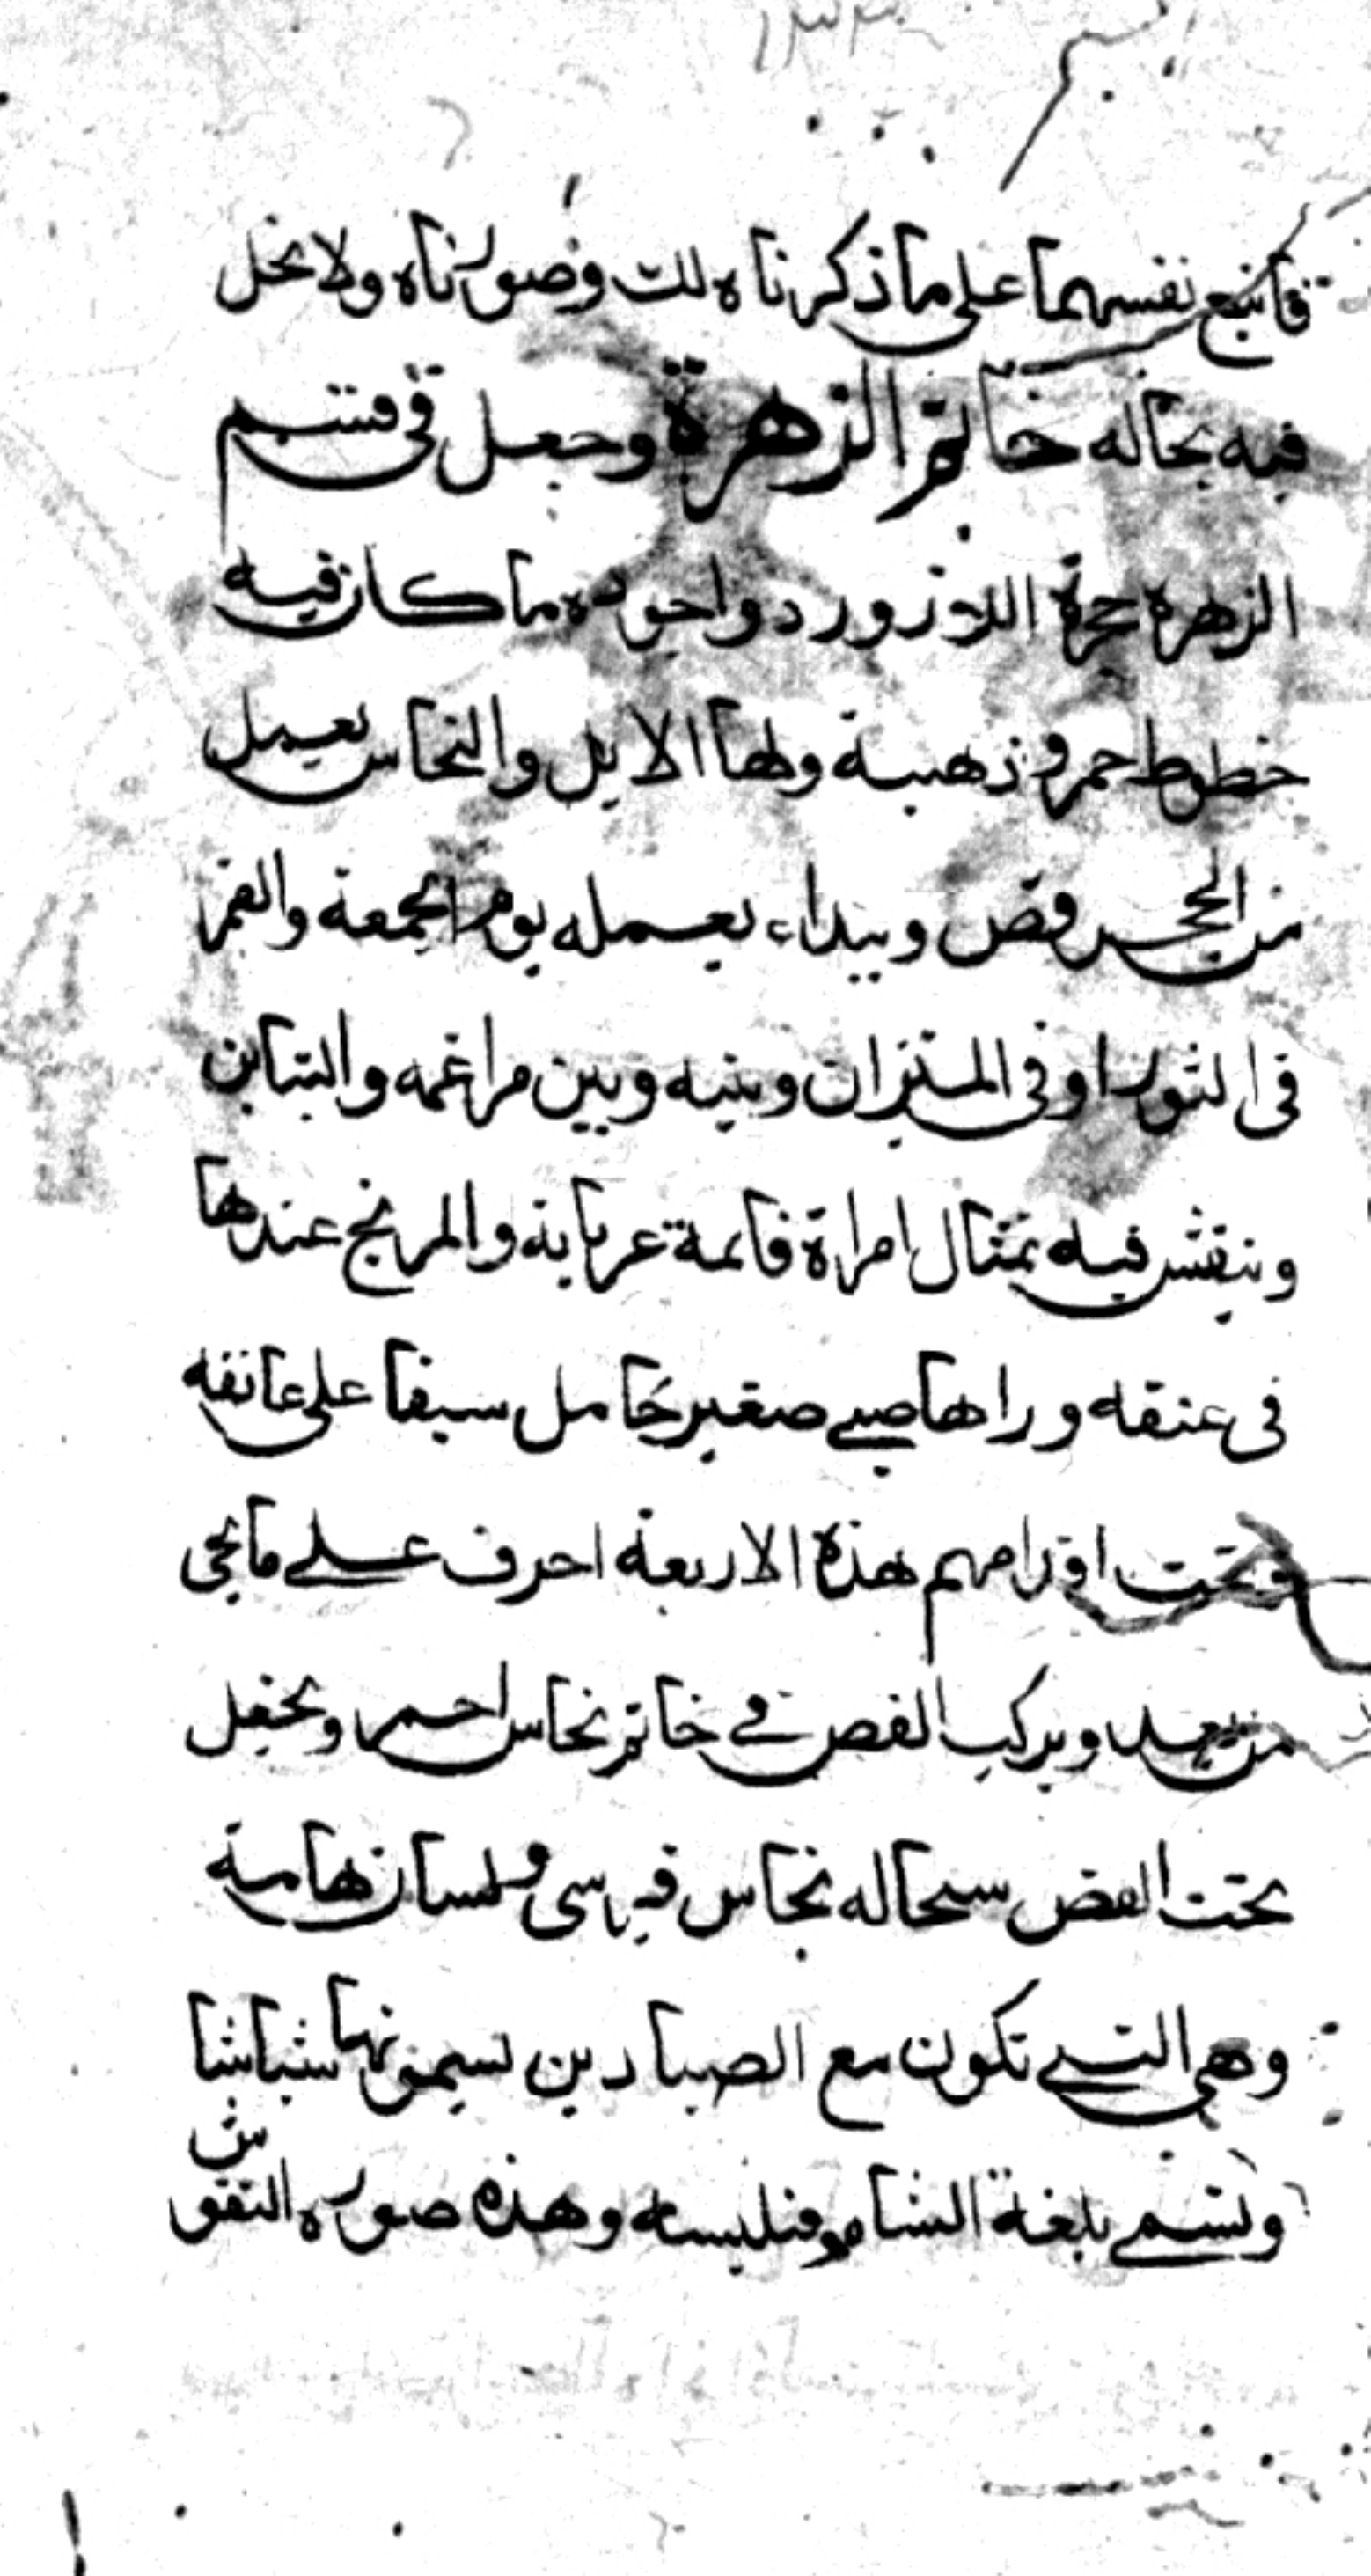 فاتبع نفسهما على ما ذكرناه لك وصورناه ولا تخل
فيه بحاله خاتم الزهرة وجعل في قسم
الزهرة حجرة اللازورد واجوده ما كان فيه
خطوط حمر وذهبية ولها الايل والنحاس يعمل
من الحجر فص ويبداء بعمله يوم الجمعة والقمر
في الثور او في الميزان وبينه وبين
وينقش فيه تمثال امراة قائمة عريانة والمريخ عندها
في عنقه وراها صبي صغير حامل سيفا على عاتقه
وتحت اقدامهم هذه الاربعة احرف على ما يجى
من بعد ويركب الفص في خاتم نحاس احمر ويجعل
تحت الفص سحاله نحاس
وهي التي تكون مع الصيادين يسمونها شباشا
وتسمى بلغة الشام وهذه صوره النقوش